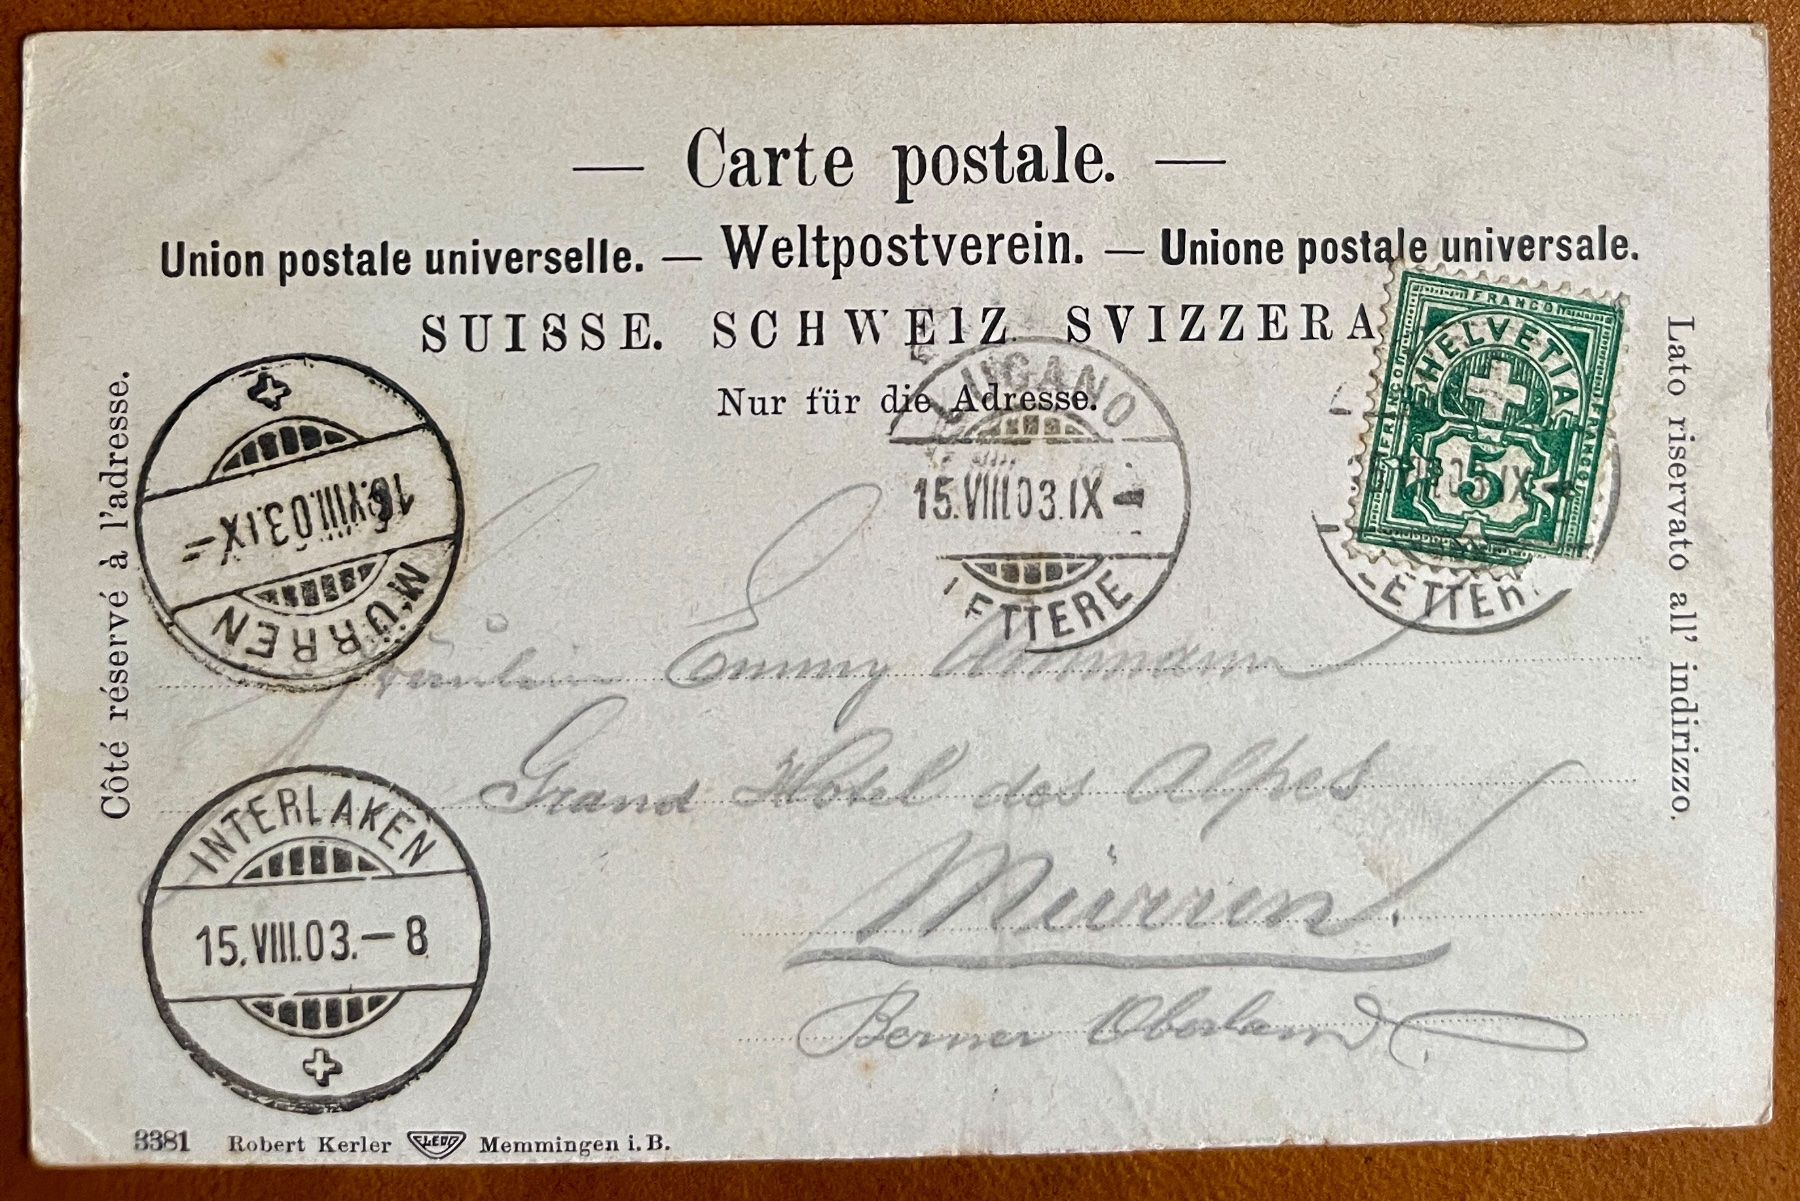 — Carte postale. —
Union postale universelle. — Weltpostverein. — Unione postale universale.
SUISSE. SCHWEIZ. SVIZZERA
Nur für die Adresse.
Côté réservé à l'adresse.
Lato riservato all' indirizzo.
FRANCO
FRANCO
FRANCO
HELVETIA
5
LUGANO
15.VIII.03.IX-
LETTERE
IX
MÜRREN
16.VIII.03.IX-
Fräulein Emmy Ammann
Grand Hotel des Alpes
Mürren.
Berner Oberland
INTERLAKEN
15.VIII.03.-8
3381 Robert Kerler Memmingen i. B.